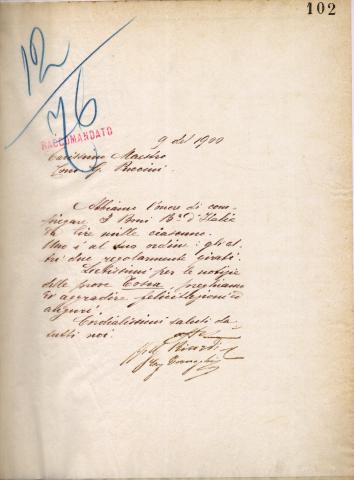 102
12/76
RACCOMANDATO
9 del 1900
Carissimo Maestro
Comm G. Puccini.
Abbiamo l'onore di com-
piegare 3 Boni Bca d'Italia
da lire mille ciascuno.
Uno è al suo ordine: gli al-
tri due regolarmente girati.
Lietissimi per le notizie
delle prove Tosca, preghiamo
di aggradire felicitazioni ed
auguri.
Cordialissimi saluti da
tutti noi.
Ricordi